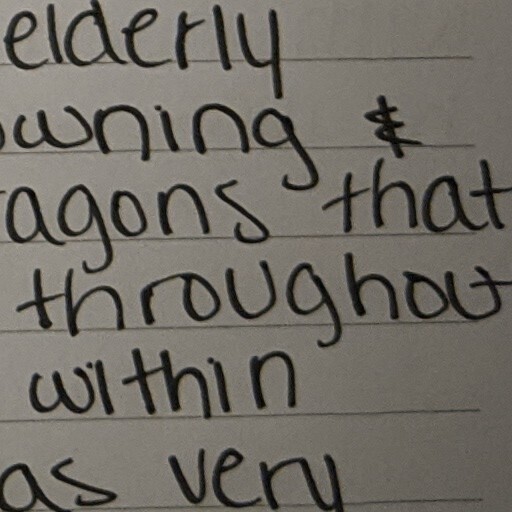 elderly
owning &
agons that
throughout
within
as very